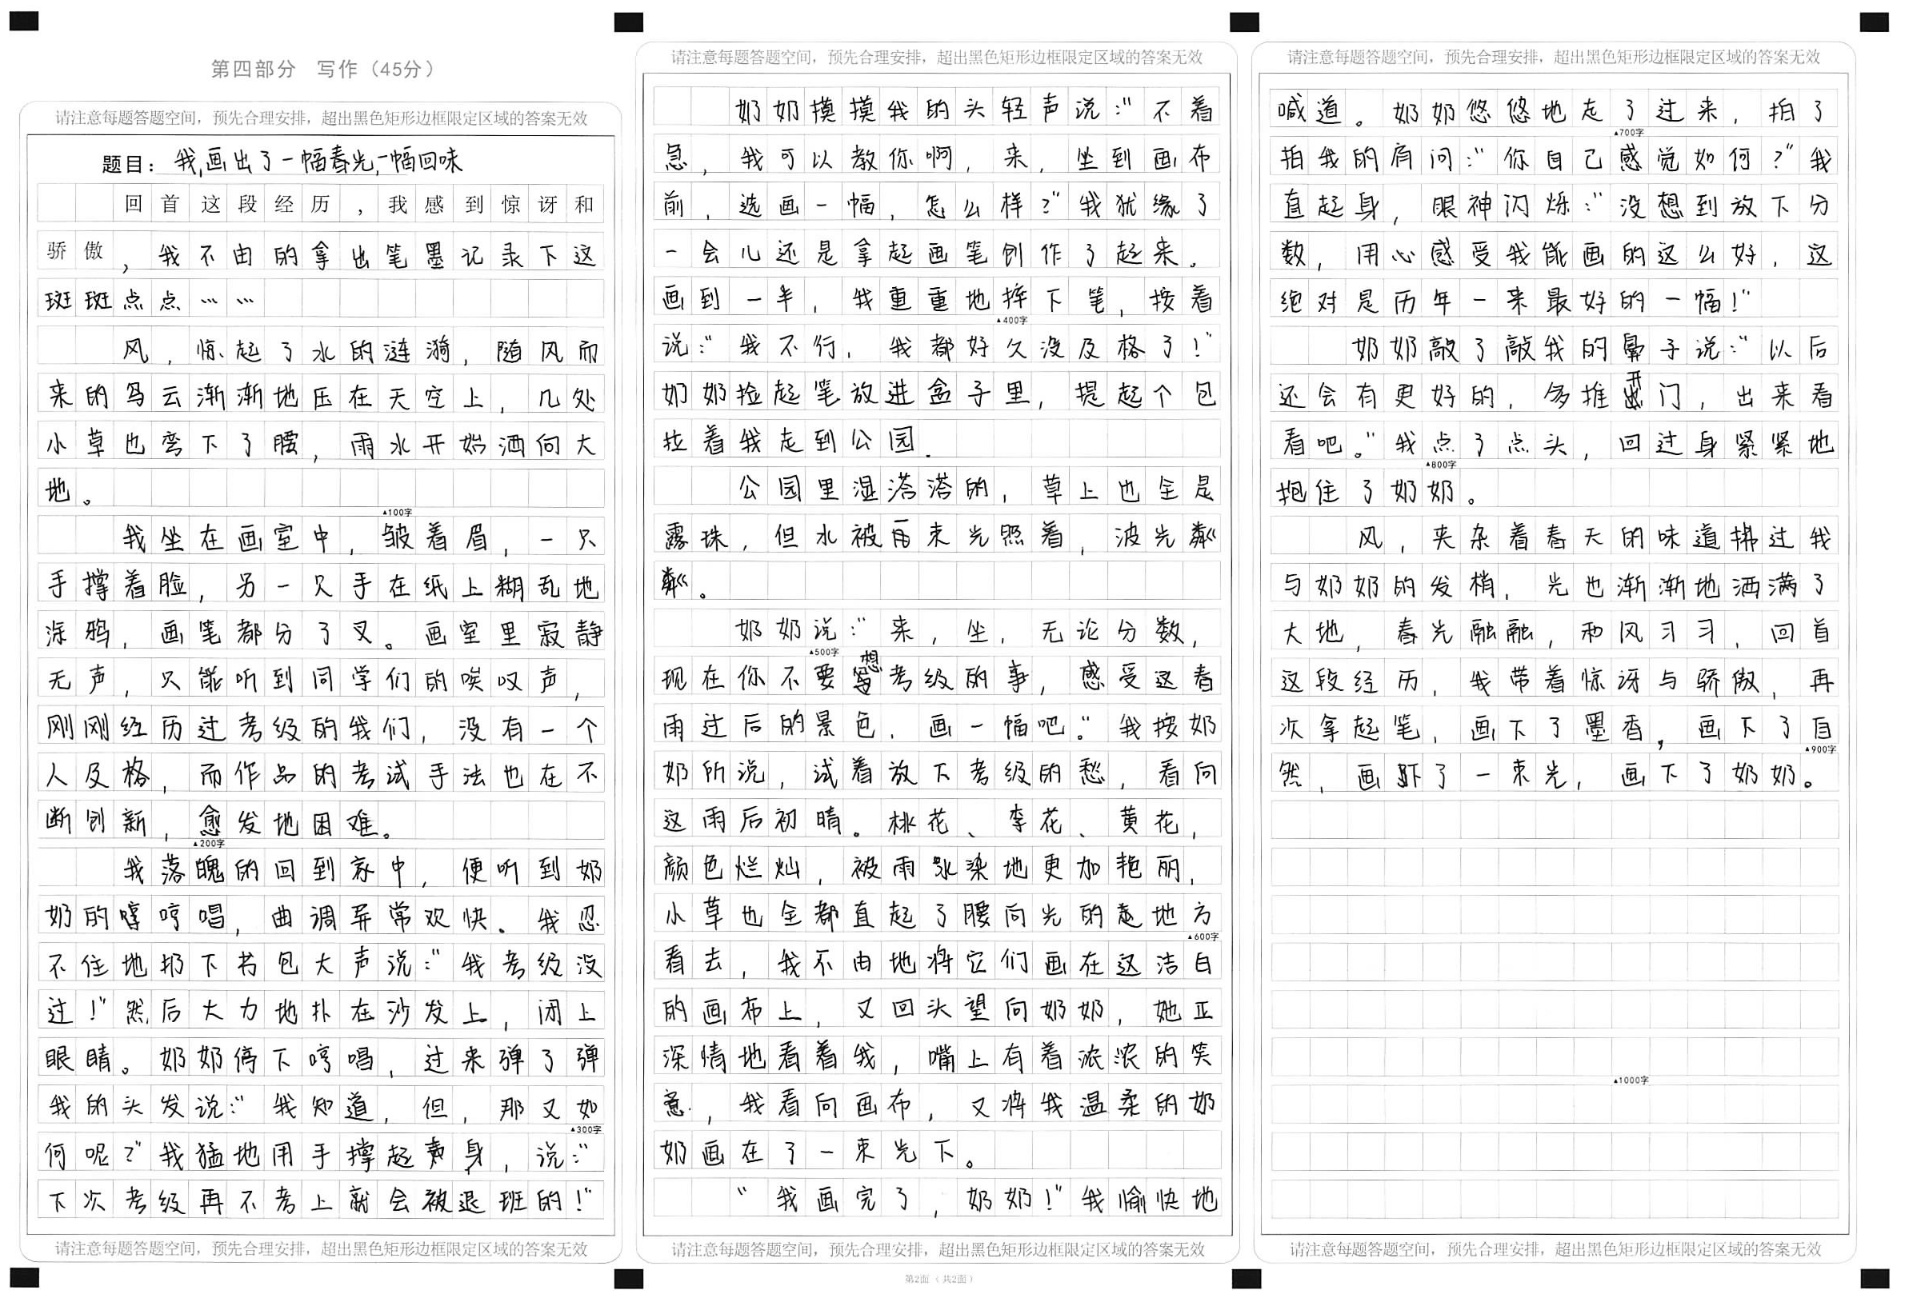 第四部分 写作（45分）
请注意每题答题空间，预先合理安排，超出黑色矩形边框限定区域的答案无效
题目：我画出了一幅春光，一幅回味
回首这段经历，我感到惊讶和
骄傲，我不由的拿出笔墨记录下这
斑斑点点……
风，惊起了水的涟漪，随风而
来的乌云渐渐地压在天空上，几处
小草也弯下了腰，雨水开始洒向大
地。
▲100字
我坐在画室中，皱着眉，一只
手撑着脸，另一只手在纸上糊乱地
涂鸦，画笔都分了叉。画室里寂静
无声，只能听到同学们的唉叹声，
刚刚经历过考级的我们，没有一个
人及格，而作品的考试手法也在不
断创新，愈发地困难。
▲200字
我落魄的回到家中，便听到奶
奶的哼哼唱，曲调异常欢快。我忍
不住地扔下书包大声说：“我考级没
过！”然后大力地扑在沙发上，闭上
眼睛。奶奶停下哼唱，过来弹了弹
我的头发说：“我知道，但，那又如
▲300字
何呢？”我猛地用手撑起身，说：“
下次考级再不考上就会被退班的！”
请注意每题答题空间，预先合理安排，超出黑色矩形边框限定区域的答案无效
请注意每题答题空间，预先合理安排，超出黑色矩形边框限定区域的答案无效
奶奶摸摸我的头轻声说：“不着
急，我可以教你啊，来，坐到画布
前，选画一幅，怎么样？”我犹缘了
一会儿还是拿起画笔创作了起来。
画到一半，我重重地摔下笔，接着
▲400字
说：“我不行，我都好久没及格了！”
奶奶捡起笔放进盒子里，提起个包
拉着我走到公园。
公园里湿漭漭的，草上也全是
露珠，但水被束光照着，波光粼
粼。
奶奶说：“来，坐，无论分数，
▲500字
现在你不要想考级的事，感受这春
雨过后的景色，画一幅吧。”我按奶
奶所说，试着放下考级的愁，看向
这雨后初晴。桃花、李花、黄花，
颜色烂灿，被雨水染地更加艳丽，
小草也全都直起了腰向光的地方
▲600字
看去，我不由地将它们画在这洁白
的画布上，又回头望向奶奶，她正
深情地看着我，嘴上有着浓浓的笑
意，我看向画布，又将我温柔的奶
奶画在了一束光下。
“我画完了，奶奶！”我愉快地
请注意每题答题空间，预先合理安排，超出黑色矩形边框限定区域的答案无效
第2面（共2面）
请注意每题答题空间，预先合理安排，超出黑色矩形边框限定区域的答案无效
喊道。奶奶悠悠地走了过来，拍了
▲700字
拍我的肩问：“你自己感觉如何？”我
直起身，眼神闪烁：“没想到放下分
数，用心感受我能画的这么好，这
绝对是历年一来最好的一幅！”
奶奶敲了敲我的鼻子说：“以后
还会有更好的，多推开门，出来看
看吧。”我点了点头，回过身紧紧地
▲800字
抱住了奶奶。
风，夹杂着春天的味道拂过我
与奶奶的发梢，光也渐渐地洒满了
大地，春光融融，和风习习，回首
这段经历，我带着惊讶与骄傲，再
次拿起笔，画下了墨香，画下了自
▲900字
然，画下了一束光，画下了奶奶。
▲1000字
请注意每题答题空间，预先合理安排，超出黑色矩形边框限定区域的答案无效